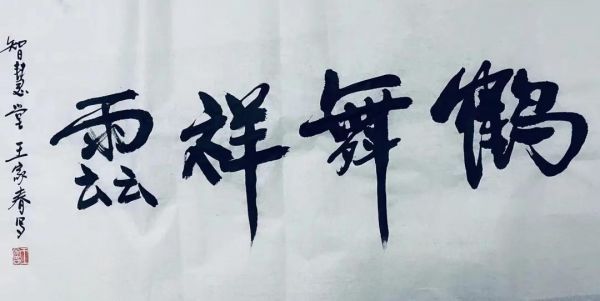 鶴舞祥雲
智慧堂王家春写